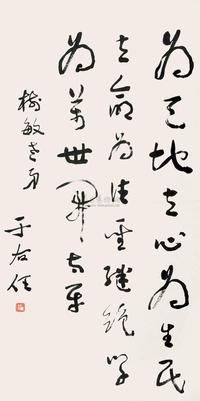 為天地立心為生民
立命為往聖繼絕學
為萬世開太平
樹敏老弟
于右任